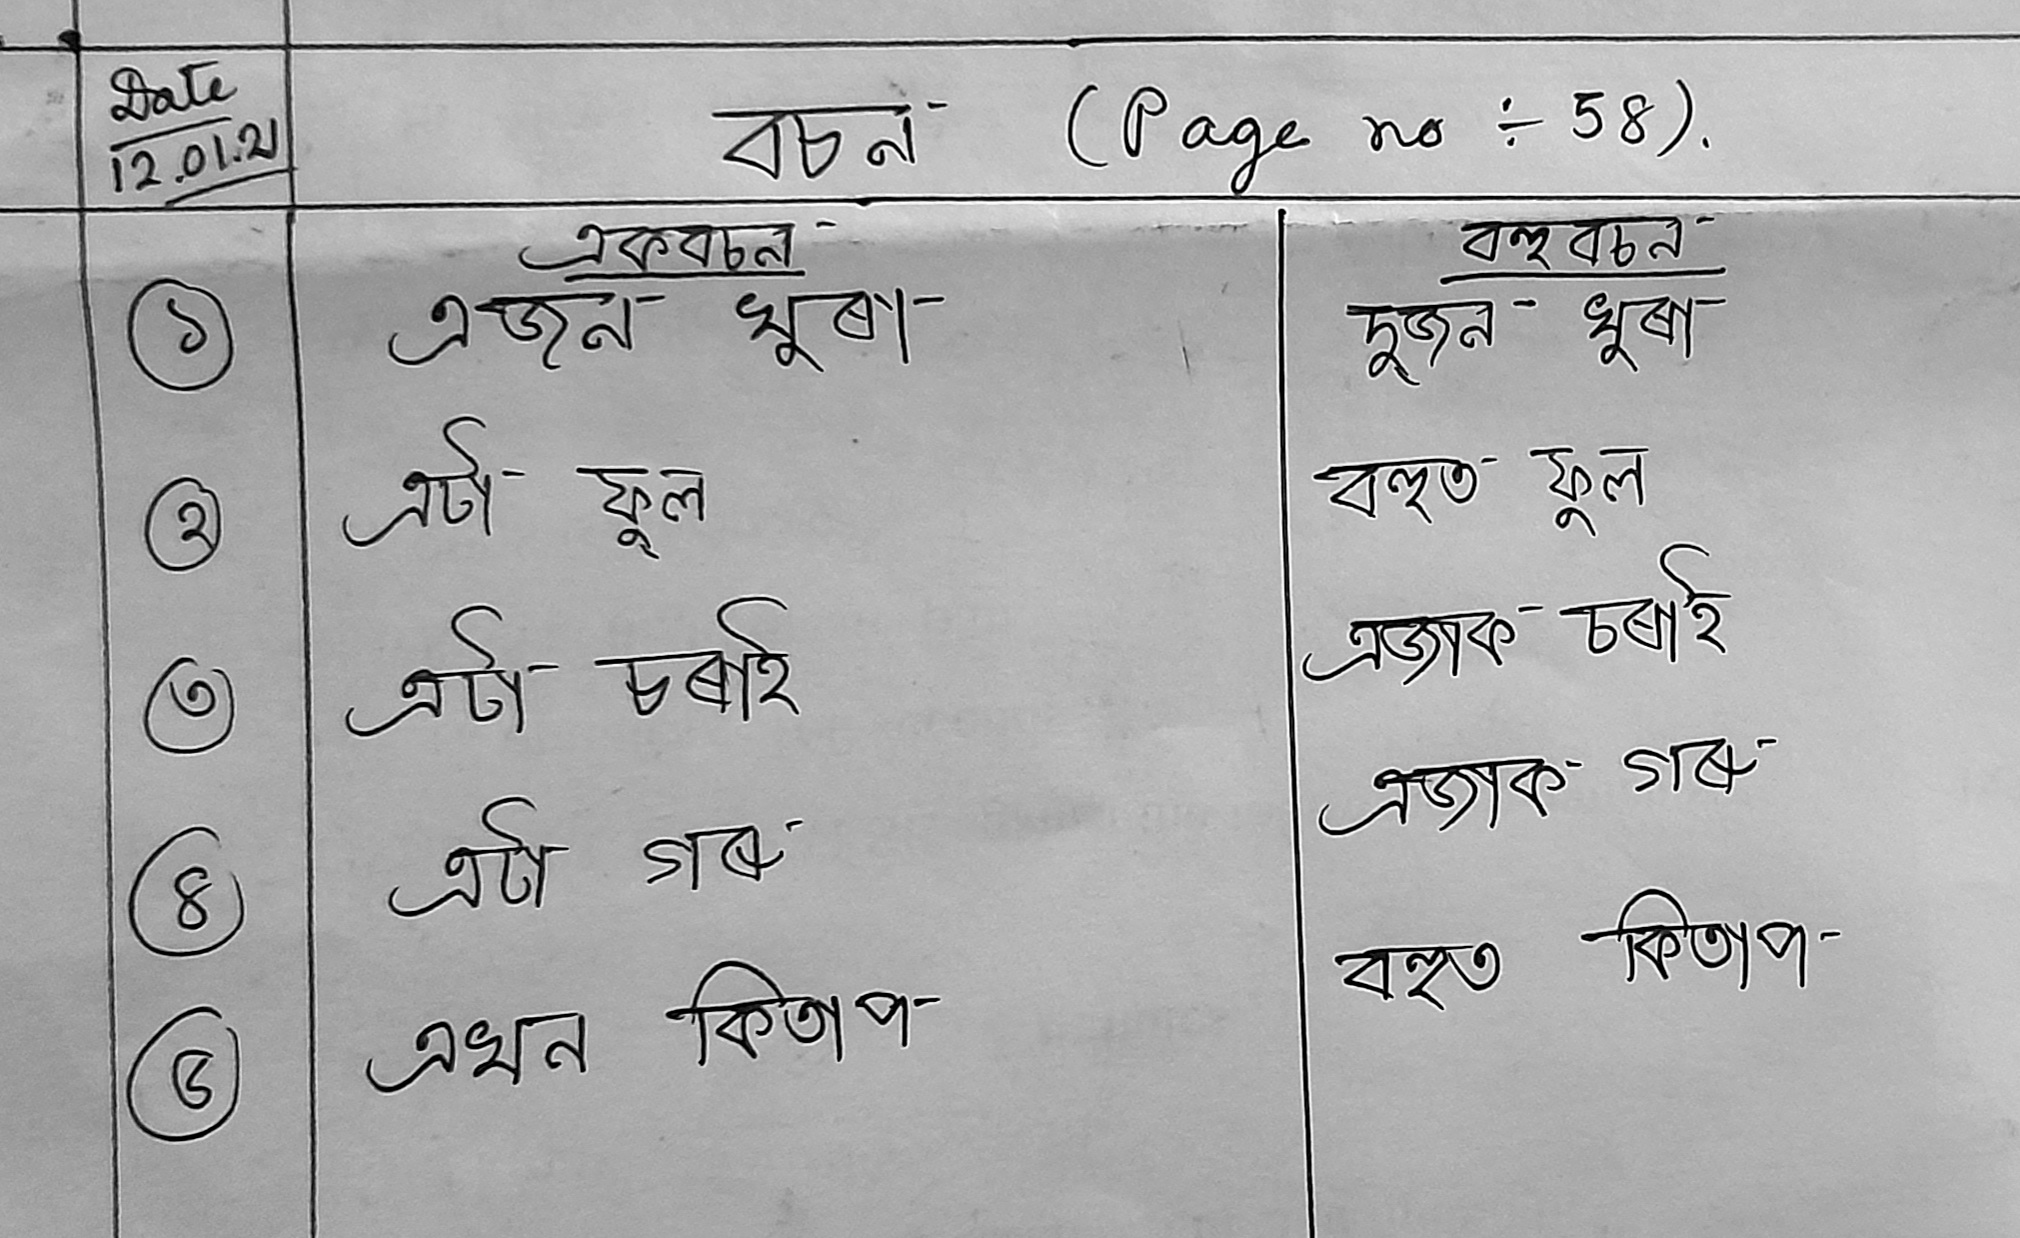 Date
12.01.21
বচন (Page no ÷ 58).
একবচন বহুবচন
১ এজন খুৰা দুজন খুৰা
২ এটা ফুল বহুত ফুল
৩ এটা চৰাই এজাক চৰাই
৪ এটা গৰু এজাক গৰু
৫ এখন কিতাপ বহুত কিতাপ